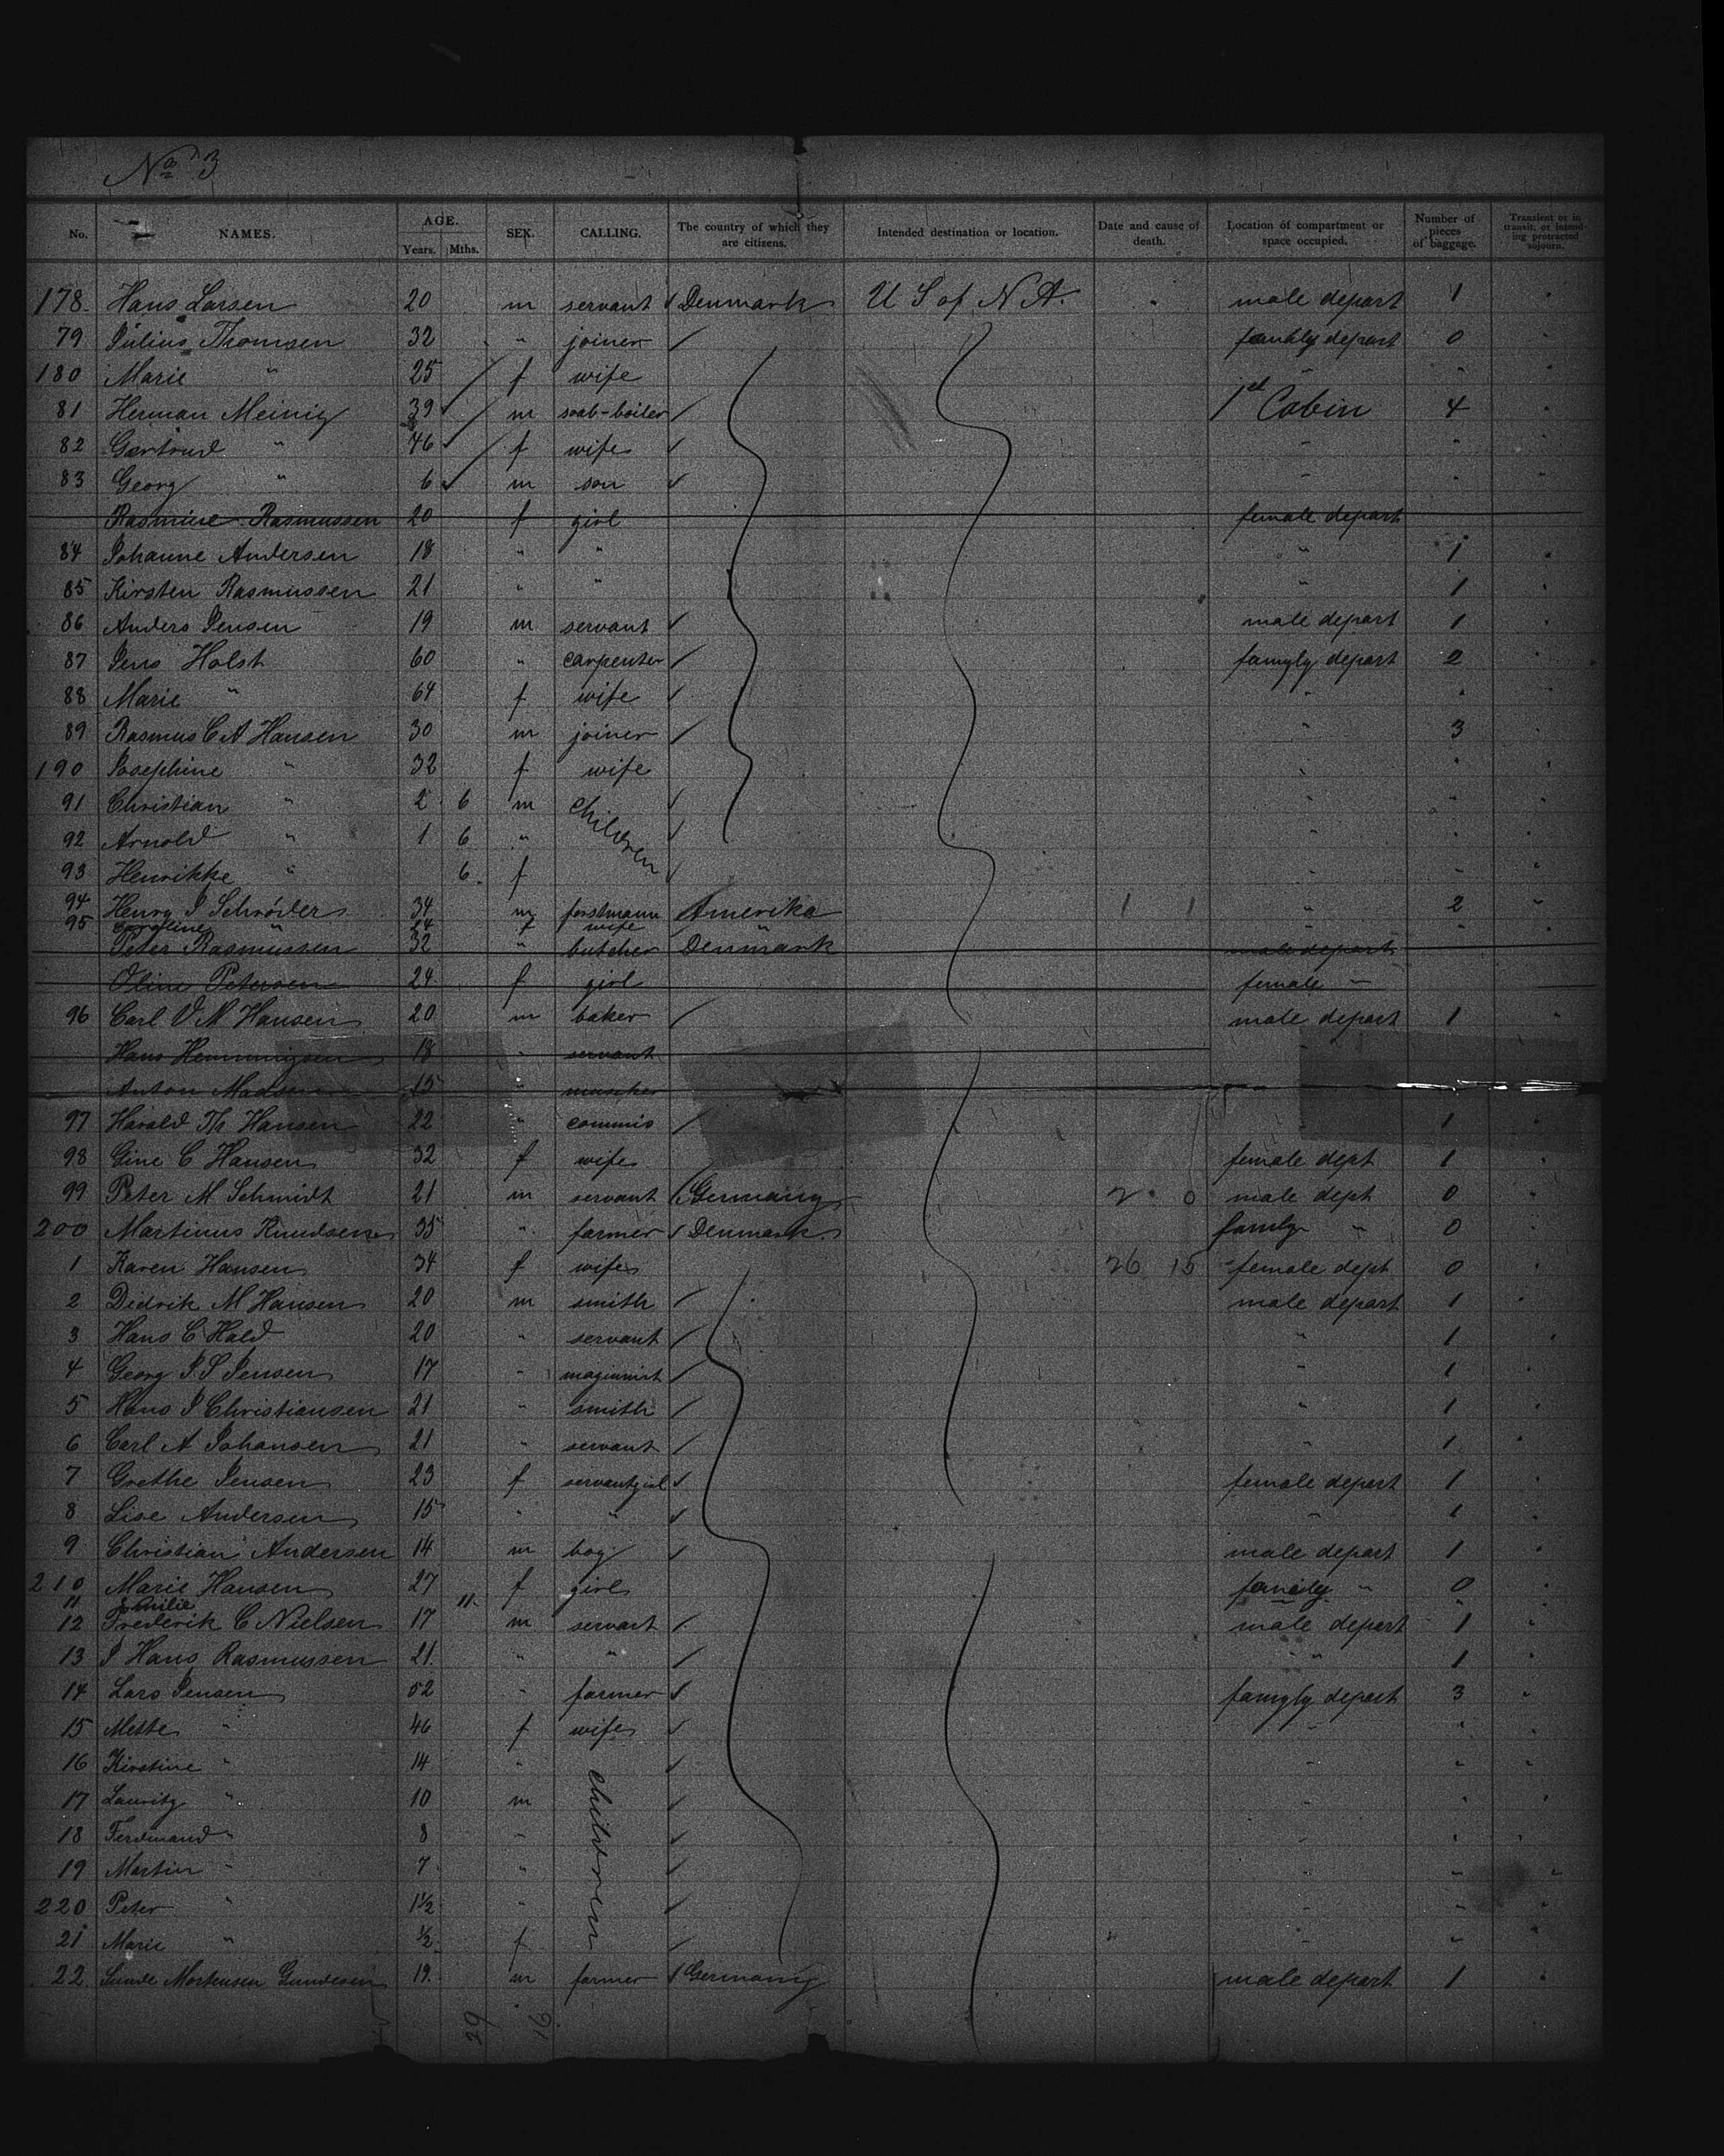 No 3
No. NAMES. AGE. Years. Mths. SEX. CALLING. The country of which they are citizens. Intended destination or location. Date and cause of death. Location of compartment or space occupied. Number of pieces of baggage. Transient or in transit, or intending protracted sojourn.
178. Hans Larsen 20 m servant Denmark U S of N A. " male depart 1
79 Julius Thomsen 32 " joiner family depart 0
180 Marie " 25 f wife " "
81 Herman Meinig 39 m soab-boiler 1st Cabin 4
82 Gertrud " 46 f wife " "
83 Georg " 6 m son " "
Rasmine Rasmussen 20 f girl female depart
84 Johanne Andersen 18 " " " 1
85 Kirsten Rasmussen 21 " " " 1
86 Anders Jensen 19 m servant male depart 1
87 Jens Holst 60 " carpenter famyly depart 2
88 Marie " 64 f wife " "
89 Rasmus C A Hansen 30 m joiner " 3
190 Josephine " 32 f wife " "
91 Christian " 2 6 m children " "
92 Arnold " 1 6 " " "
93 Henrikke " 6 f " "
94 Henry J Schröder 34 m forstmann Amerika 1 1 " 2
95 Caroline " 24 f wife " " "
Peter Rasmussen 32 " butcher Denmark male depart
Oline Petersen 24 f girl female "
96 Carl V M Hansen 20 m baker male depart 1
Hans Hemmingsen 18 " servant
Anton Madsen 15 "
97 Harald Th Hansen 22 " commis 1
98 Gine C Hansen 32 f wife female dept 1
99 Peter M Schmidt 21 m servant Germany 2 0 male dept 0
200 Martinus Knudsen 35 " farmer Denmark family " 0
1 Karen Hansen 34 f wife 26 15 female dept 0
2 Didrik M Hansen 20 m smith male depart 1
3 Hans C Hald 20 " servant " 1
4 Georg J S Jensen 17 " maginnist " 1
5 Hans J Christiansen 21 " smith " 1
6 Carl A Johansen 21 " servant " 1
7 Grethe Jensen 23 f servantgirl female depart 1
8 Lise Andersen 15 " " " 1
9 Christian Andersen 14 m boy male depart 1
210 Marie Hansen 27 f girl family " 0
11 Emilie 11 "
12 Frederik C Nielsen 17 m servant male depart 1
13 J Hans Rasmussen 21 " " " 1
14 Lars Jensen 52 " farmer famyly depart 3
15 Mette " 46 f wife " "
16 Kirstine " 14 " children " "
17 Lauritz " 10 m " "
18 Ferdinand " 8 " " "
19 Martin " 7 " " "
220 Peter " 1½ " " "
21 Marie " ½ f " " "
22. Mortensen 19 m farmer Germany male depart 1
29 16